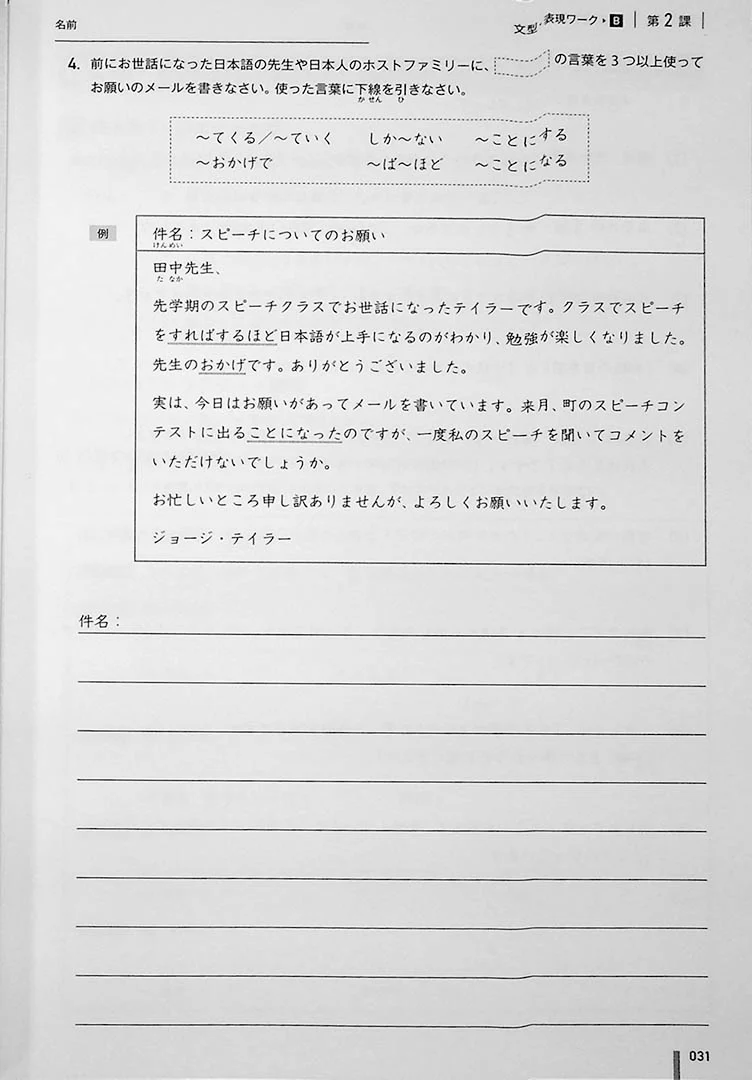 名前
文型・表現ワーク▸B 第2課
4. 前にお世話になった日本語の先生や日本人のホストファミリーに、 の言葉を3つ以上使って
お願いのメールを書きなさい。使った言葉に下線を引きなさい。
かせん ひ
~てくる/~ていく しか~ない ~ことにする
~おかげで ~ば~ほど ~ことになる
例
件名:スピーチについてのお願い
けんめい
田中先生、
たなか
先学期のスピーチクラスでお世話になったテイラーです。クラスでスピーチ
をすればするほど日本語が上手になるのがわかり、勉強が楽しくなりました。
先生のおかげです。ありがとうございました。
実は、今日はお願いがあってメールを書いています。来月、町のスピーチコン
テストに出ることになったのですが、一度私のスピーチを聞いてコメントを
いただけないでしょうか。
お忙しいところ申し訳ありませんが、よろしくお願いいたします。
ジョージ・テイラー
件名:
031